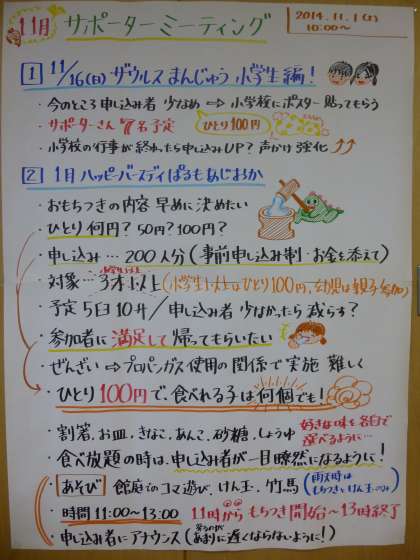 11月 サポーターミーティング
2014.11.1(土)
10:00〜
1 11/16(日) ザウルスまんじゅう 小学生編!
・今のところ 申し込み者 少なめ ⇨ 小学校にポスター 貼ってもらう
・サポーターさん 7名予定 ひとり100円
・小学校の行事が終わったら申し込みUP? 声かけ 強化
2 1月ハッピーバースディぱるもあじおか
・おもちつきの内容 早めに 決めたい
・ひとり何円? 50円? 100円?
・申し込み… 200人分 (事前申し込み制・お金を添えて)
・対象… 3才以上 (小学生以上はひとり100円、幼児は親子参加)
・予定 5臼10升 / 申し込み者 少なかったら 減らす?
・参加者に満足して帰ってもらいたい
・ぜんざい ⇨ プロパンガス使用の関係で実施 難しく
・ひとり100円で、食べれる子は何個でも!
・割箸、お皿、きなこ、あんこ、砂糖、しょうゆ
好きな味を各自で
選べるように…
・食べ放題の時は、申し込み者が一目瞭然になるように!
・あそび 館庭でのコマ遊び、けん玉、竹馬 (雨天時は
もちつきとけん玉のみ)
・時間 11:00〜13:00 11時からもちつき開始〜13時終了
・申し込み者にアナウンス (あまりに遅くならないように!)